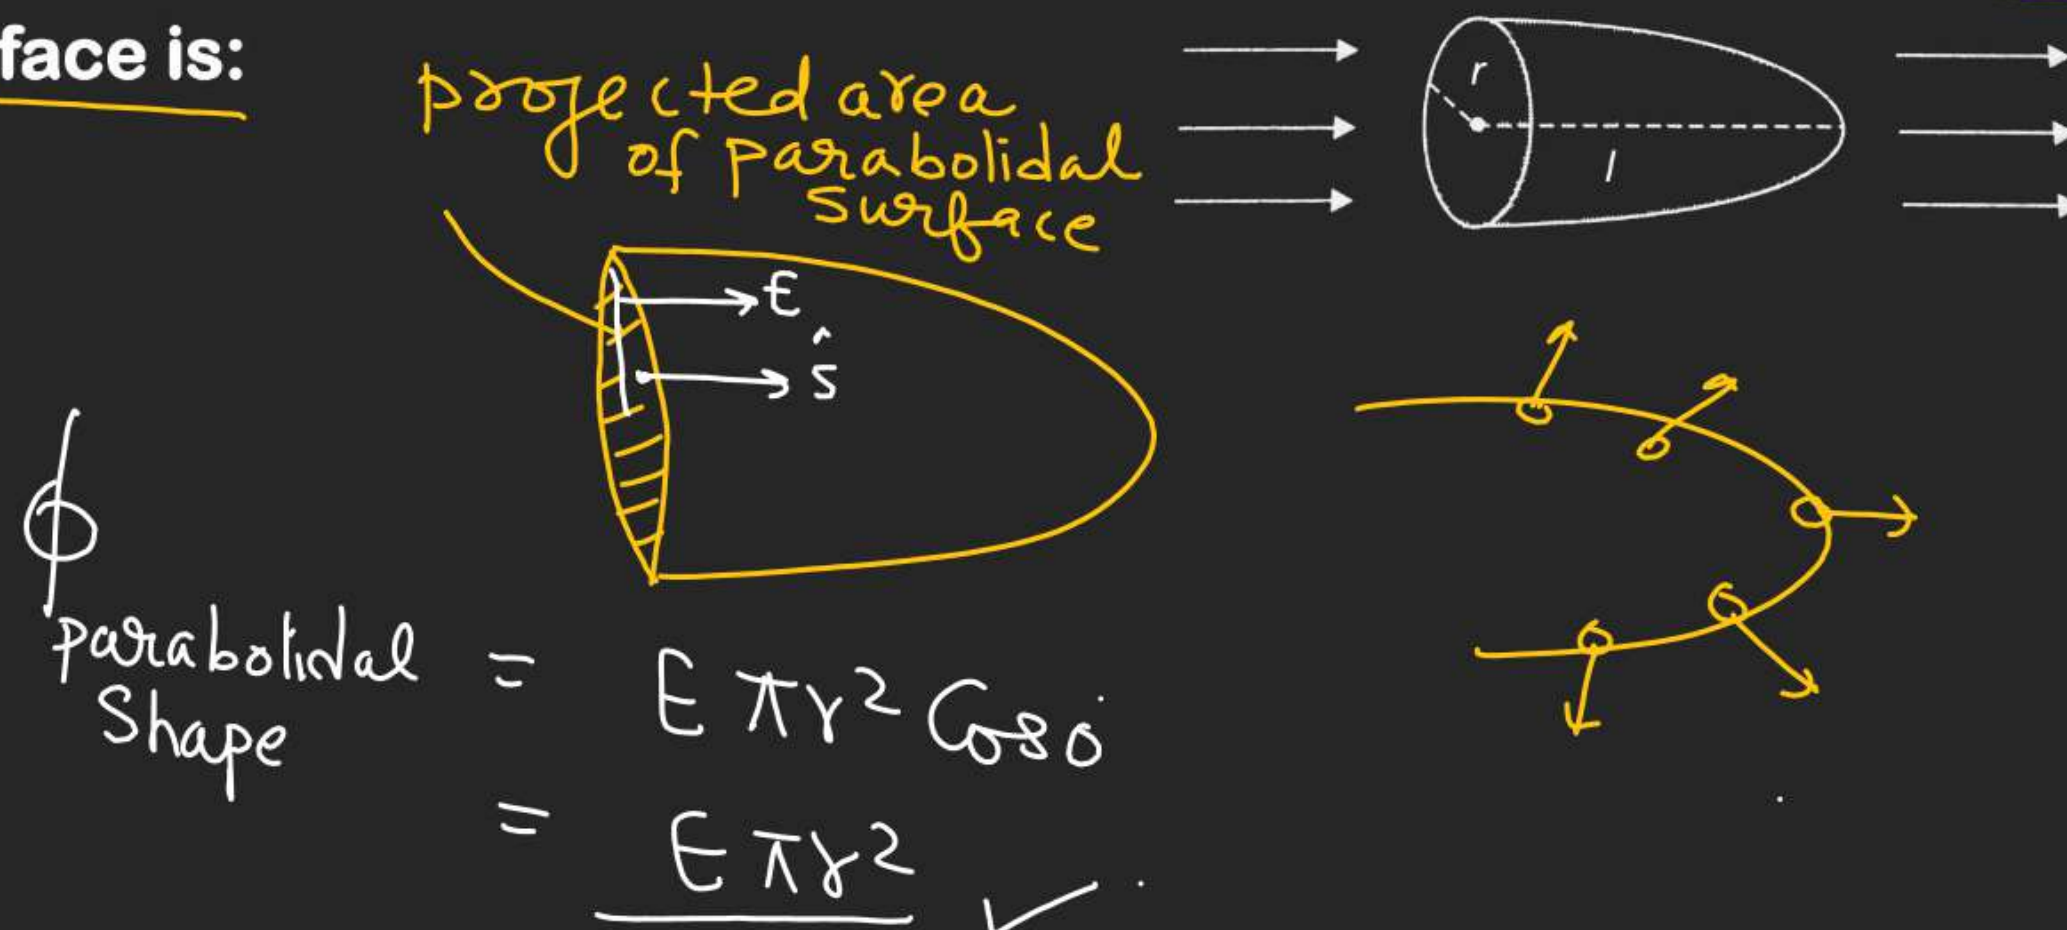 face is:
projected area
of parabolidal
surface
r
l
E
ŝ
ϕ
parabolidal
Shape
= E πr² Cos0
= E πr² ✓